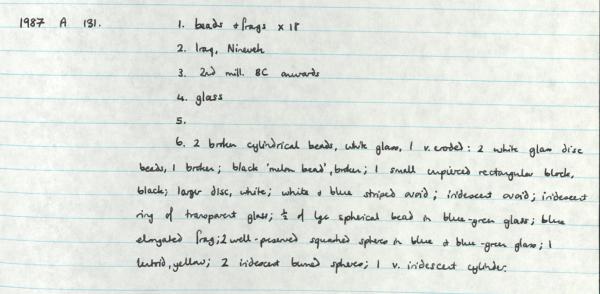 1987 A 131. 1. beads + frags x 18
2. Iraq, Nineveh
3. 2nd mill. BC onwards
4. glass
5.
6. 2 broken cylindrical beads, white glass, 1 v. eroded: 2 white glass disc
beads, 1 broken; black 'melon bead', broken; 1 small unpierced rectangular block,
black; larger disc, white; white & blue striped ovoid; iridescent ovoid; iridescent
ring of transparent glass; ½ of lge spherical bead in blue-green glass; blue
elongated frag; 2 well-preserved squashed spheres in blue & blue-green glass; 1
lentoid, yellow; 2 iridescent burned spheres; 1 v. iridescent cylinder.